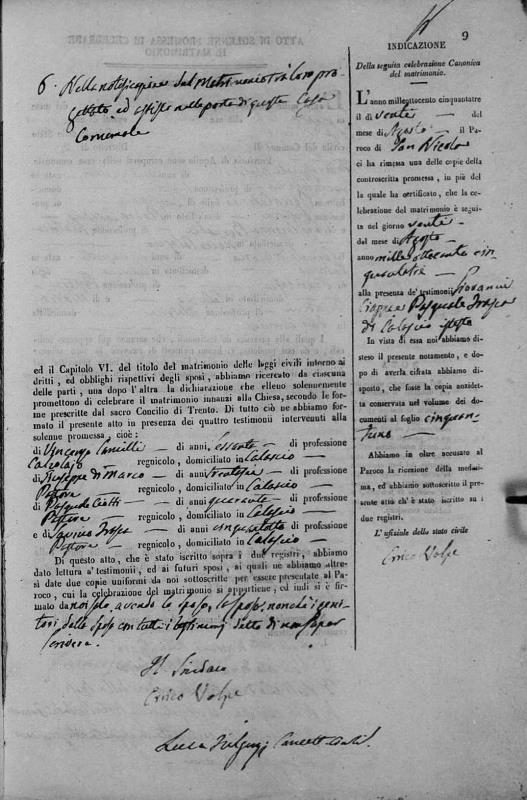 9
6. Nella notificazione del Matrimonio tra loro pro-
gettato ed affisso nella porta di questa Casa
Comunale
ed il Capitolo VI. del titolo del matrimonio delle leggi civili intorno ai
dritti, ed obblighi rispettivi degli sposi, abbiamo ricercato da ciascuna
delle parti, una dopo l'altra la dichiarazione che elleno solennemente
promettono di celebrare il matrimonio innanzi alla Chiesa, secondo le for-
me prescritte dal sacro Concilio di Trento. Di tutto ciò ne abbiamo for-
mato il presente atto in presenza dei quattro testimonj intervenuti alla
solenne promessa, cioè:
di Vincenzo Camilli – di anni sessanta – di professione
Calzolajo regnicolo, domiciliato in Calascio –
di Giuseppe di Marco – di anni – di professione
Pastore regnicolo, domiciliato in Calascio
di Pasquale Ciotti – di anni quaranta – di professione
Pastore – regnicolo, domiciliato in Calascio –
e di Frasca – di anni di professione
Pastore – regnicolo, domiciliato in Calascio –
Di questo atto, che è stato iscritto sopra i due registri, abbiamo
dato lettura a' testimonj, ed ai futuri sposi, ai quali ne abbiamo altre-
sì date due copie uniformi da noi sottoscritte per essere presentate al Pa-
roco, cui la celebrazione del matrimonio si appartiene, ed indi si è fir-
mato da noi solo, avendo lo sposo, la sposa, nonchè i geni-
tori dello sposo con tutti i testimonj detto di non saper
scrivere.
Il Sindaco
Errico Volpe
Luca
INDICAZIONE
Della seguita celebrazione Canonica
del matrimonio.
L'anno milleottocento cinquantatre
il dì venti – del
mese di Agosto – il Pa-
roco di San Nicola
ci ha rimessa una delle copie della
controscritta promessa, in piè del
la quale ha certificato, che la ce-
lebrazione del matrimonio è segui-
ta nel giorno venti
del mese di Agosto –
anno mille ottocento cin
quantatre –
alla presenza de' testimonii Giovanni
Pasquale Frasca
di Calascio
In vista di essa noi abbiamo di-
steso il presente notamento, e do-
po di averla cifrata abbiamo di-
sposto, che fosse la copia anzidet-
ta conservata nel volume dei do-
cumenti al foglio cinquan-
tuno –
Abbiamo in oltre accusato al
Paroco la ricezione della medesi-
ma, ed abbiamo sottoscritto il pre-
sente atto ch'è stato scritto su i
due registri.
L'ufiziale dello stato civile
Errico Volpe